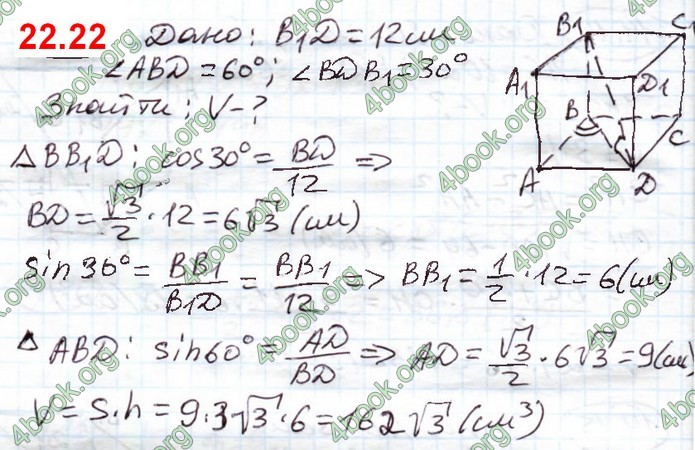 22.22 Дано: B₁D = 12см
∠ABD = 60°; ∠BDB₁ = 30°
Знайти: V-?
△BB₁D: cos30° = BD/12 =>
BD = √3/2 · 12 = 6√3 (см)
sin30° = BB₁/B₁D = BB₁/12 => BB₁ = 1/2 · 12 = 6(см)
△ABD: sin60° = AD/BD => AD = √3/2 · 6√3 = 9(см)
V = S.h = 9·3√3·6 = 162√3 (см³)
B1 C1
A1 D1
B C
A D
4book.org
4book.org
4book.org
4book.org
4book.org
4book.org
4book.org
4book.org
4book.org